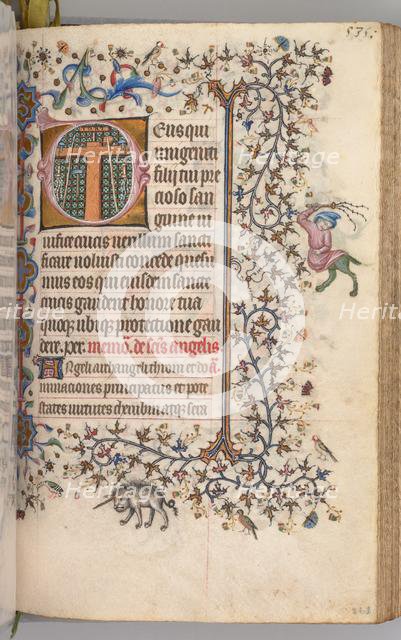 535.
Deus qui
unigeniti
filii tui pre
cioso san
guine ui
uifice crucis uexillum sancti
ficare uoluisti concede quesu
mus eos qui eiusdem sancte
crucis gaudent honore tua
quoque ubique protectione gau
dere. per. memo. de scis angelis
Angeli archangeli throni et do
minaciones principatus et pote
states uirtutes cherubin atque sera
268
Heritage
Heritage
Heritage
Heritage
Heritage
Heritage